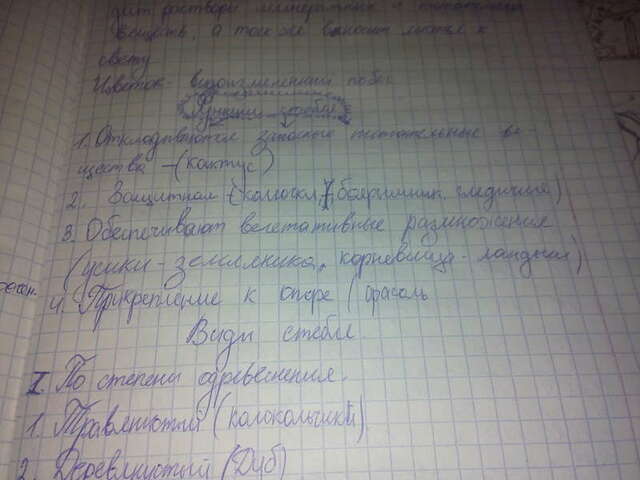 дит раствори минеральных и питательных
веществ, а так же выносит листья к
свету
Цветок - видоизменённый побег
Функции стебля
1. Откладываются запасные питательные ве-
щества - (кактус)
2. Защитная (колючки, боярышник, гледичия)
3. Обеспечивают вегетативные размножения
(усики - земляника, корневища - ландыш)
4. Прикрепление к опоре (фасоль
Виды стебля.
I. По степени одревеснения.
1. Травянистый (колокольчик)
2. Деревянистый (Дуб)